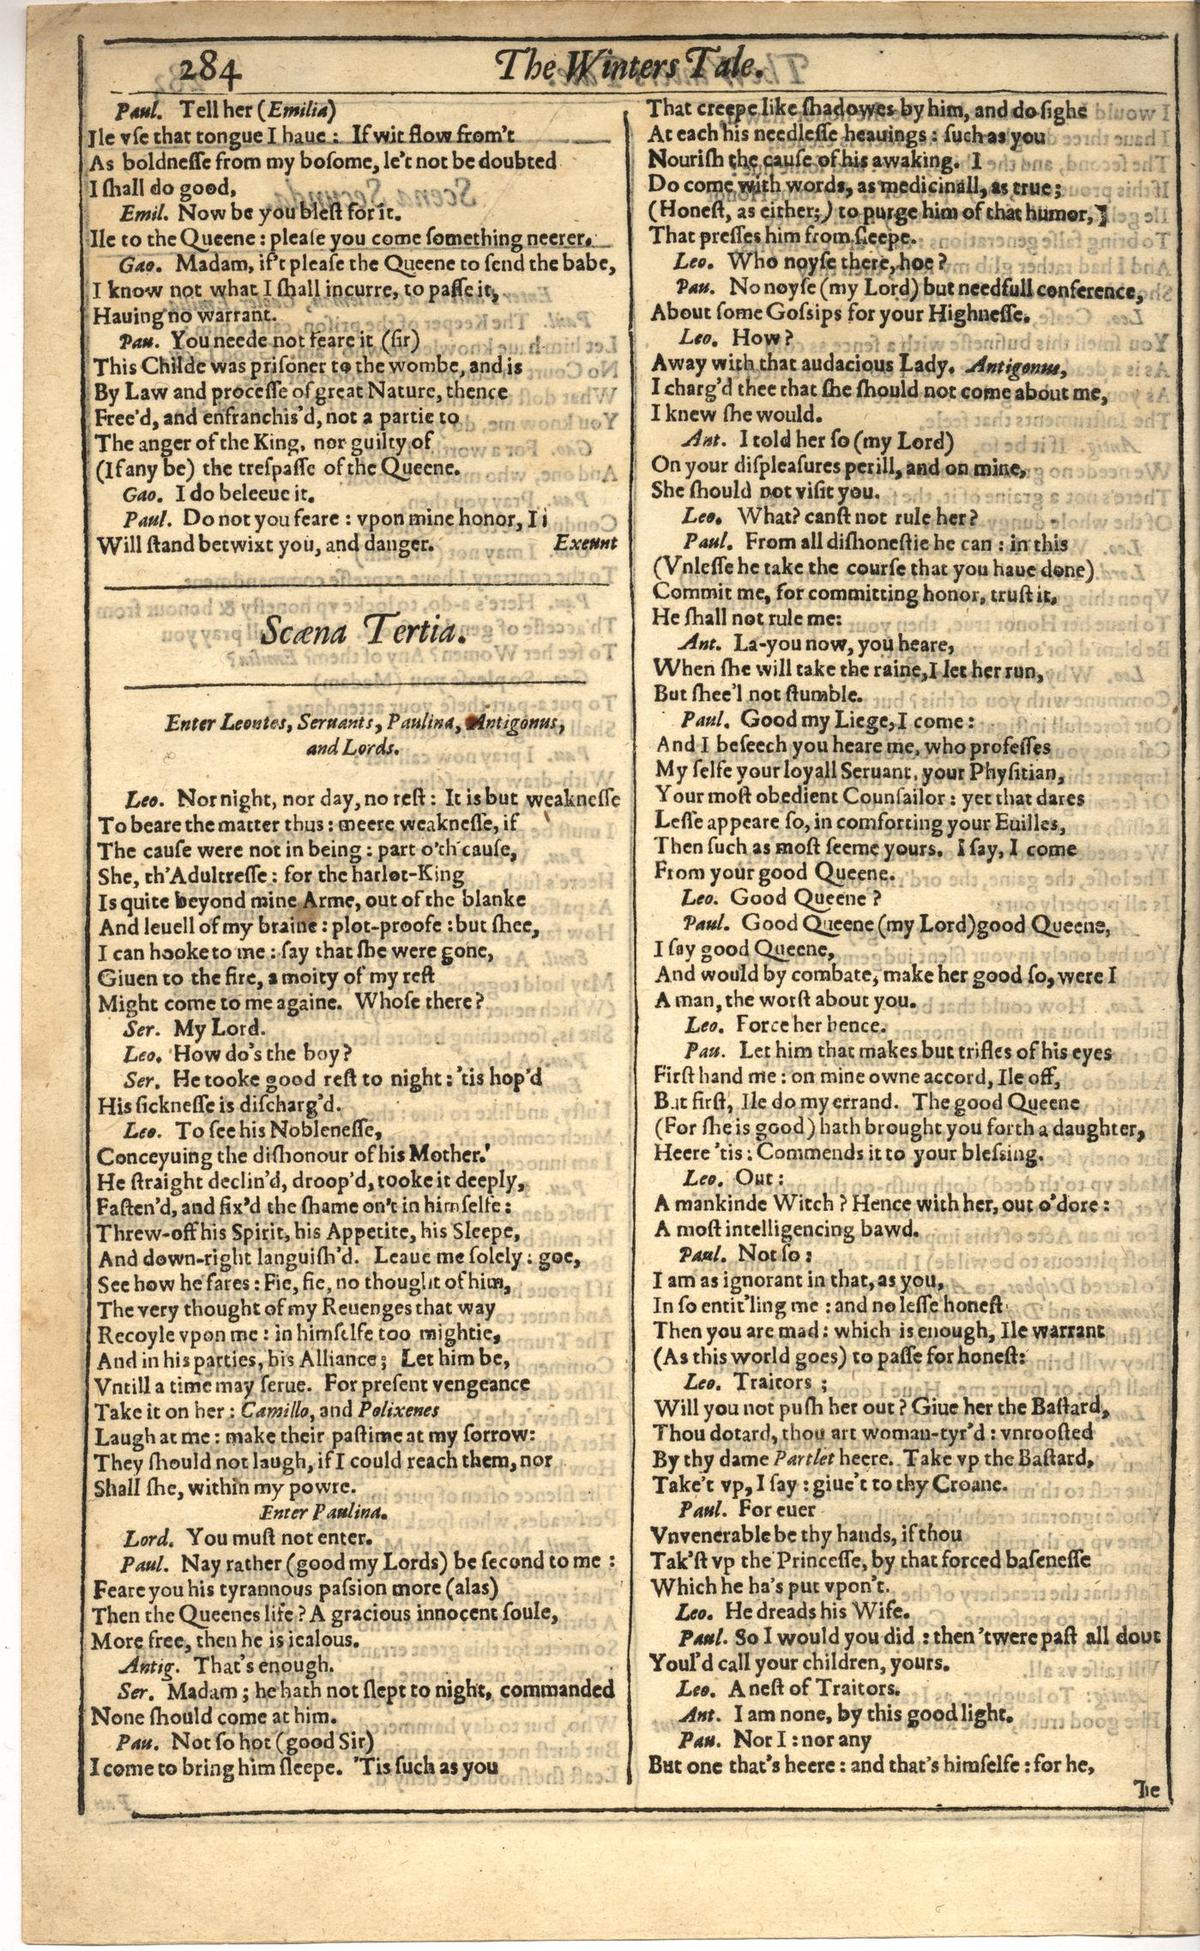 284
The Winters Tale.
Paul. Tell her (Emilia)
Ile vse that tongue I haue: If wit flow from't
As boldnesse from my bosome, le't not be doubted
I shall do good,
Emil. Now be you blest for it.
Ile to the Queene: please you come something neerer.
Gao. Madam, if't please the Queene to send the babe,
I know not what I shall incurre, to passe it,
Hauing no warrant.
Pau. You neede not feare it (sir)
This Childe was prisoner to the wombe, and is
By Law and processe of great Nature, thence
Free'd, and enfranchis'd, not a partie to
The anger of the King, nor guilty of
(If any be) the trespasse of the Queene.
Gao. I do beleeue it.
Paul. Do not you feare: vpon mine honor, I
Will stand betwixt you, and danger. Exeunt
Scæna Tertia.
Enter Leontes, Seruants, Paulina, Antigonus,
and Lords.
Leo. Nor night, nor day, no rest: It is but weaknesse
To beare the matter thus: meere weaknesse, if
The cause were not in being: part o'th cause,
She, th'Adultresse: for the harlot-King
Is quite beyond mine Arme, out of the blanke
And leuell of my braine: plot-proofe: but shee,
I can hooke to me: say that she were gone,
Giuen to the fire, a moity of my rest
Might come to me againe. Whose there?
Ser. My Lord.
Leo. How do's the boy?
Ser. He tooke good rest to night: 'tis hop'd
His sicknesse is discharg'd.
Leo. To see his Noblenesse,
Conceyuing the dishonour of his Mother.
He straight declin'd, droop'd, tooke it deeply,
Fasten'd, and fix'd the shame on't in himselfe:
Threw-off his Spirit, his Appetite, his Sleepe,
And down-right languish'd. Leaue me solely: goe,
See how he fares: Fie, fie, no thought of him,
The very thought of my Reuenges that way
Recoyle vpon me: in himselfe too mightie,
And in his parties, his Alliance; Let him be,
Vntill a time may serue. For present vengeance
Take it on her: Camillo, and Polixenes
Laugh at me: make their pastime at my sorrow:
They should not laugh, if I could reach them, nor
Shall she, within my powre.
Enter Paulina.
Lord. You must not enter.
Paul. Nay rather (good my Lords) be second to me:
Feare you his tyrannous passion more (alas)
Then the Queenes life? A gracious innocent soule,
More free, then he is iealous.
Antig. That's enough.
Ser. Madam; he hath not slept to night, commanded
None should come at him.
Pau. Not so hot (good Sir)
I come to bring him sleepe. 'Tis such as you
That creepe like shadowes by him, and do sighe
At each his needlesse heauings: such as you
Nourish the cause of his awaking. I
Do come with words, as medicinall, as true;
(Honest, as either;) to purge him of that humor,
That presses him from sleepe.
Leo. Who noyse there, hoe?
Pau. No noyse (my Lord) but needfull conference,
About some Gossips for your Highnesse.
Leo. How?
Away with that audacious Lady. Antigonus,
I charg'd thee that she should not come about me,
I knew she would.
Ant. I told her so (my Lord)
On your displeasures perill, and on mine,
She should not visit you.
Leo. What? canst not rule her?
Paul. From all dishonestie he can: in this
(Vnlesse he take the course that you haue done)
Commit me, for committing honor, trust it,
He shall not rule me:
Ant. La-you now, you heare,
When she will take the raine, I let her run,
But shee'l not stumble.
Paul. Good my Liege, I come:
And I beseech you heare me, who professes
My selfe your loyall Seruant, your Physitian,
Your most obedient Counsailor: yet that dares
Lesse appeare so, in comforting your Euilles,
Then such as most seeme yours. I say, I come
From your good Queene.
Leo. Good Queene?
Paul. Good Queene (my Lord) good Queene,
I say good Queene,
And would by combate, make her good so, were I
A man, the worst about you.
Leo. Force her hence.
Pau. Let him that makes but trifles of his eyes
First hand me: on mine owne accord, Ile off,
But first, Ile do my errand. The good Queene
(For she is good) hath brought you forth a daughter,
Heere 'tis: Commends it to your blessing.
Leo. Out:
A mankinde Witch? Hence with her, out o'dore:
A most intelligencing bawd.
Paul. Not so:
I am as ignorant in that, as you,
In so entit'ling me: and no lesse honest
Then you are mad: which is enough, Ile warrant
(As this world goes) to passe for honest:
Leo. Traitors;
Will you not push her out? Giue her the Bastard,
Thou dotard, thou art woman-tyr'd: vnroosted
By thy dame Partlet heere. Take vp the Bastard,
Take't vp, I say: giue't to thy Croane.
Paul. For euer
Vnvenerable be thy hands, if thou
Tak'st vp the Princesse, by that forced basenesse
Which he ha's put vpon't.
Leo. He dreads his Wife.
Paul. So I would you did: then 'twere past all dout
Youl'd call your children, yours.
Leo. A nest of Traitors.
Ant. I am none, by this good light.
Pau. Nor I: nor any
But one that's heere: and that's himselfe: for he,
The